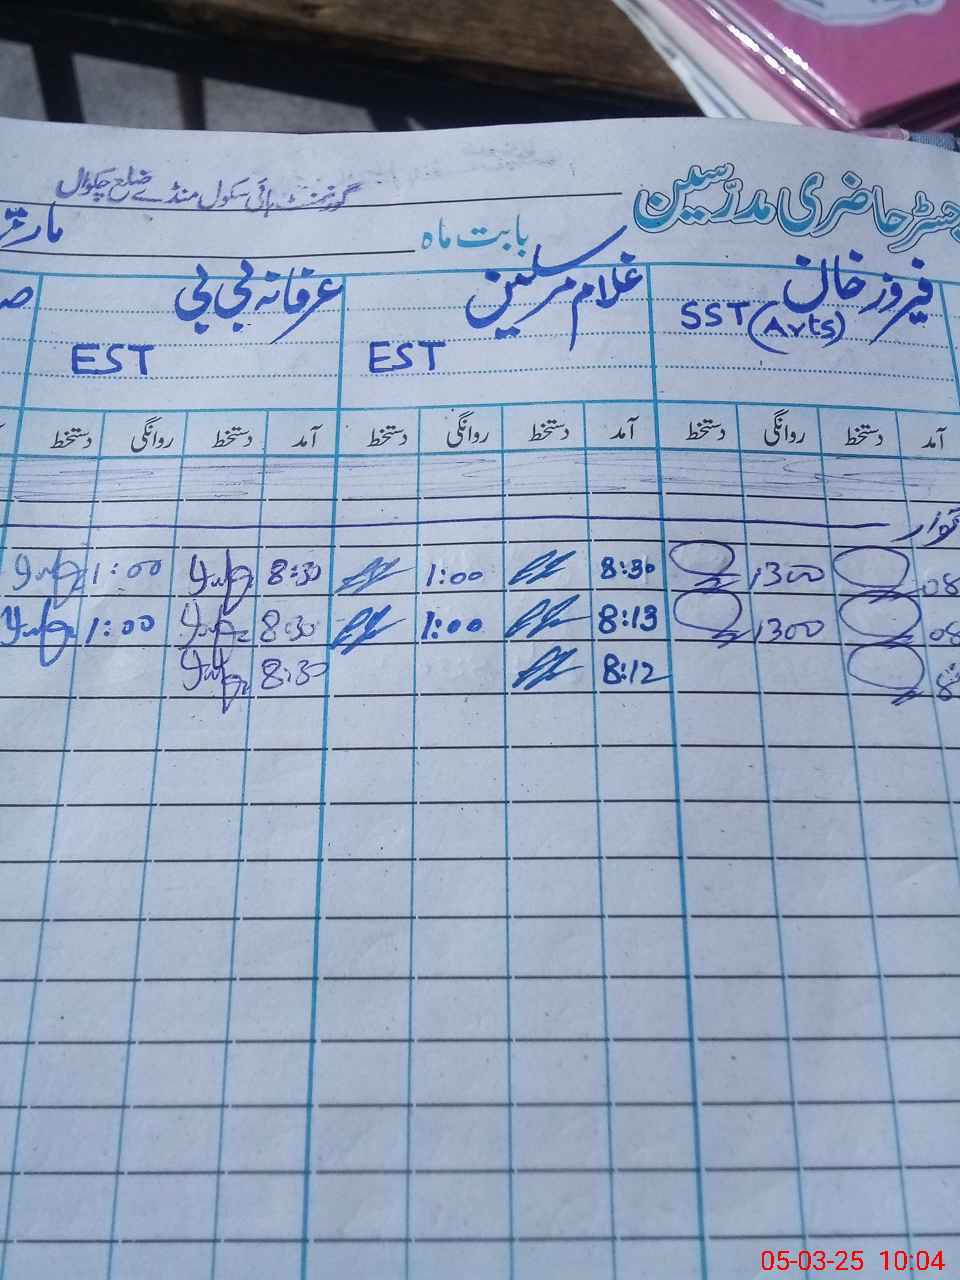 رجسٹر حاضری مدرّسین گورنمنٹ ہائی سکول منڈے ضلع چکوال
بابت ماہ مارچ
فیروز خان غلام مرسلین عرفانہ بی بی
SST (Arts) EST EST
آمد دستخط روانگی دستخط آمد دستخط روانگی دستخط آمد دستخط روانگی دستخط
اتوار
08 1300 8:30 1:00 8:30 1:00
08 1300 8:13 1:00 8:30 1:00
8:12 8:30
05-03-25 10:04